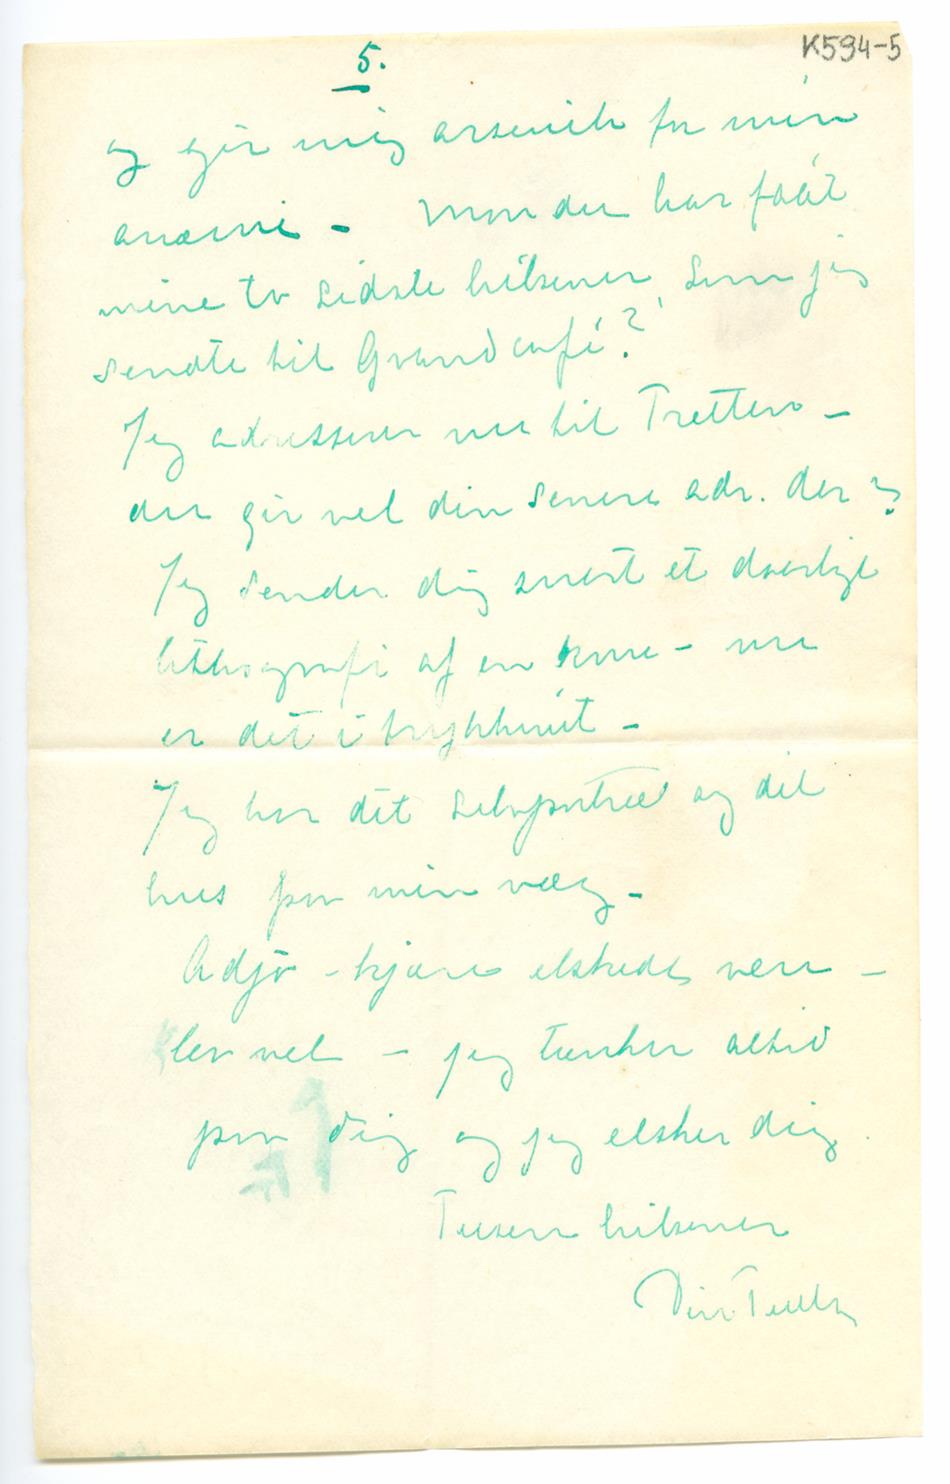 5.
K594-5
og gir mig arsenik for min
anæmi – Mon du har fåat
mine to sidste hilsener, som jeg
sendte til Grand café?
Jeg adresserer nu til Tretten –
du gir vel din senere adr. der?
Jeg sender dig snart et daarligt
lithografi af en kone – nu
er det i trykkeriet –
Jeg har dit selvportræt og dit
hus paa min væg –
Adjø – kjære elskede ven –
lev vel – jeg tænker altid
paa dig og jeg elsker dig
Tusen hilsener
Din Tulla